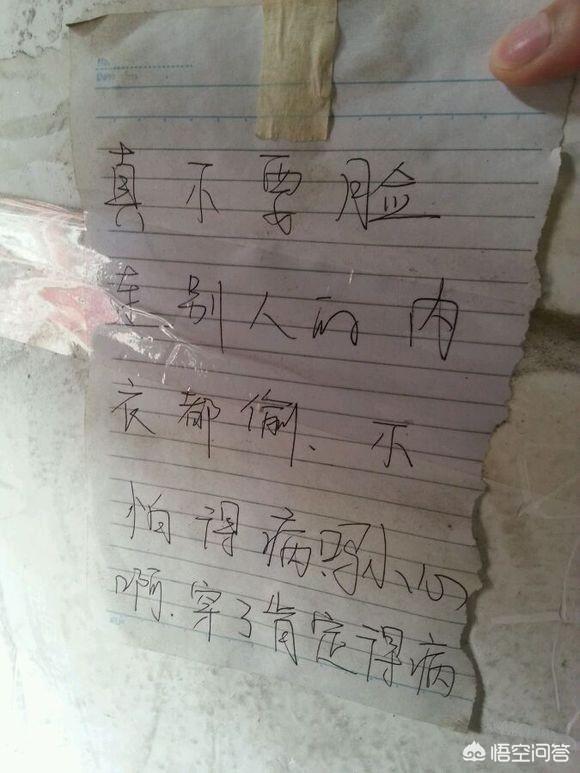 No.
Date
真不要脸
连别人的内
衣都偷、不
怕得病小心
啊.穿了肯定得病
悟空问答